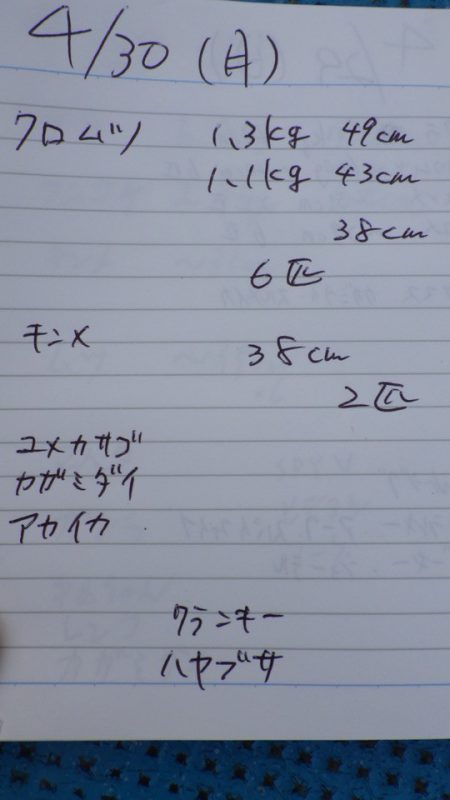 4/30(月)
クロムツ 1.3kg 49cm
1.1kg 43cm
38cm
6匹
キンメ 38cm
2匹
ユメカサゴ
カガミダイ
アカイカ
クランキー
ハヤブサ